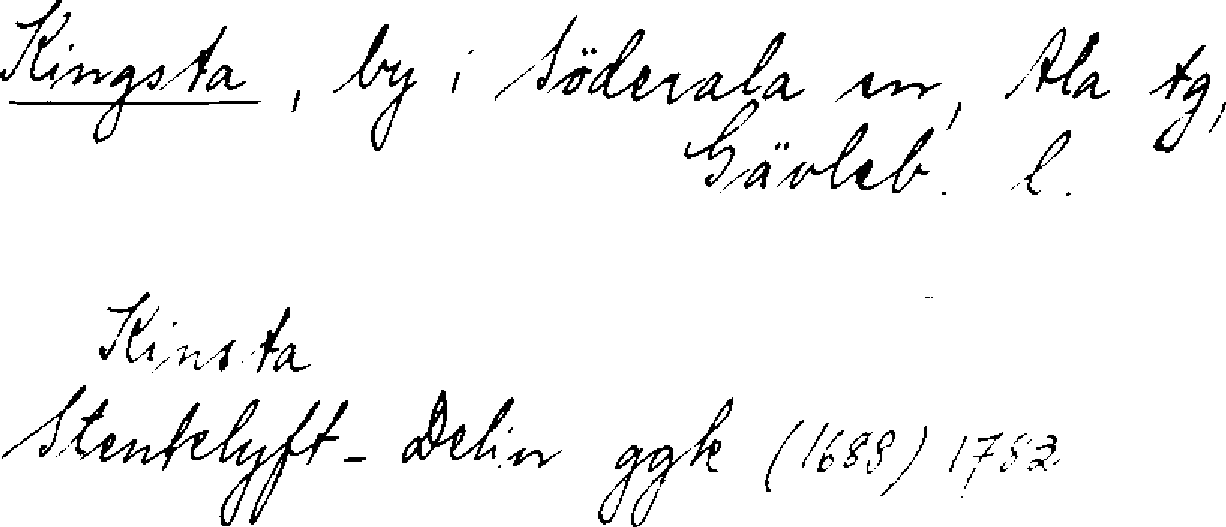 Kingsta, by i Söderala sn, Ala tg,
Gävleb. l.
Kinsta
Stenklyft-Delin ggk (1688) 1782